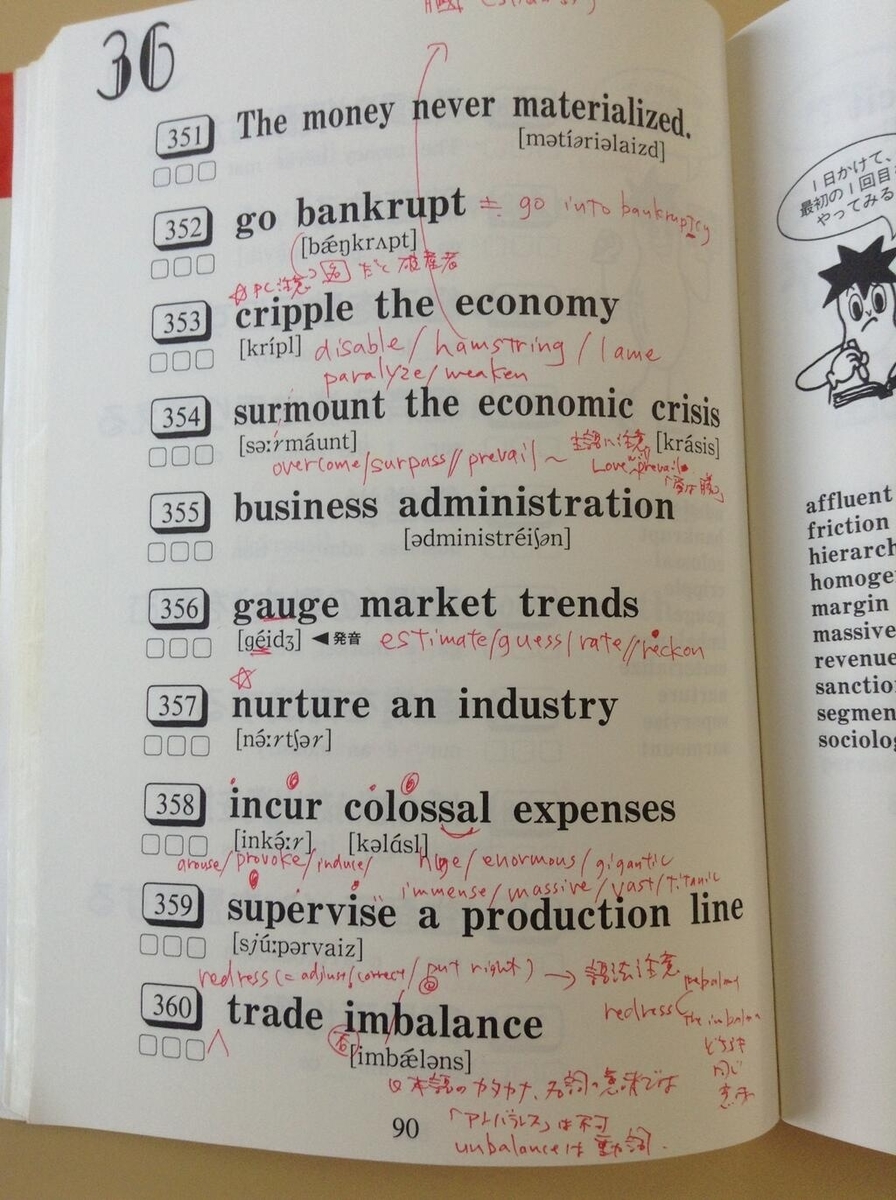 36
351 The money never materialized.
[mətíəriəlaizd]
352 go bankrupt ≒ go into bankruptcy
[bǽŋkrʌpt]
☆PC注意 名 だと破産者
353 cripple the economy
[krípl] disable/hamstring/lame
paralyze/weaken
354 surmount the economic crisis
[səːrmáunt] 主語に注意 [krásis]
overcome/surpass//prevail~ Love prevail
「愛は勝つ」
355 business administration
[ədministréiʃən]
356 gauge market trends
[géidʒ] ◀発音 estimate/guess/rate//reckon
☆
357 nurture an industry
[nə́ːrtʃər]
358 incur colossal expenses
[inkə́ːr] [kəlásl]
arouse/provoke/induce/ huge/enormous/gigantic
immense/massive/vast/titanic
359 supervise a production line
[sjúːpərvaiz]
redress(=adjust/correct/put right) → 語法注意
redress the imbalan
どちらも
同じ
360 trade imbalance
名 [imbǽləns]
日本語のカタカナ、名詞の意味では
「アンバランス」は不可
unbalanceは動詞.
90
1日かけて、
最初の1回目
やってみる
affluent
friction
hierarch
homoge
margin
massive
revenue
sanctio
segmen
sociolog